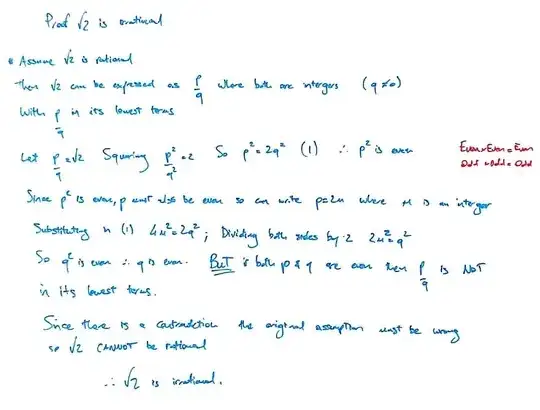 Proof √2 is irrational
• Assume √2 is rational
Then √2 can be expressed as p/q where both are integers (q ≠ 0)
With p/q in its lowest terms
Let p/q = √2 Squaring p²/q² = 2 So p² = 2q² (1) ∴ p² is even
Even×Even = Even
Odd × Odd = Odd
Since p² is even, p must also be even so can write p = 2m where m is an integer
Substituting in (1) 4m² = 2q² ; Dividing both sides by 2 2m² = q²
So q² is even ∴ q is even. BUT if both p & q are even then p/q is NOT
in its lowest terms.
Since there is a contradiction the original assumption must be wrong
so √2 CANNOT be rational
∴ √2 is irrational.